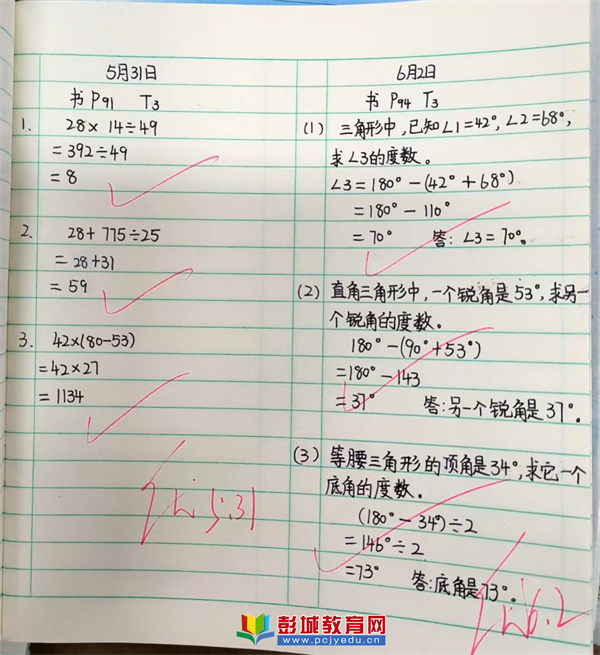 5月31日
书 P91 T3
1. 28×14÷49
=392÷49
=8
2. 28+775÷25
=28+31
=59
3. 42×(80-53)
=42×27
=1134
5.31
6月2日
书 P94 T3
(1) 三角形中,已知∠1=42°,∠2=68°,
求∠3的度数。
∠3=180°-(42°+68°)
=180°-110°
=70° 答:∠3=70°。
(2) 直角三角形中,一个锐角是53°,求另一
个锐角的度数。
180°-(90°+53°)
=180°-143
=37° 答:另一个锐角是37°。
(3) 等腰三角形的顶角是34°,求它一个
底角的度数。
(180°-34°)÷2
=146°÷2
=73° 答:底角是73°。
6.2
彭城教育网
www.pcjyedu.com